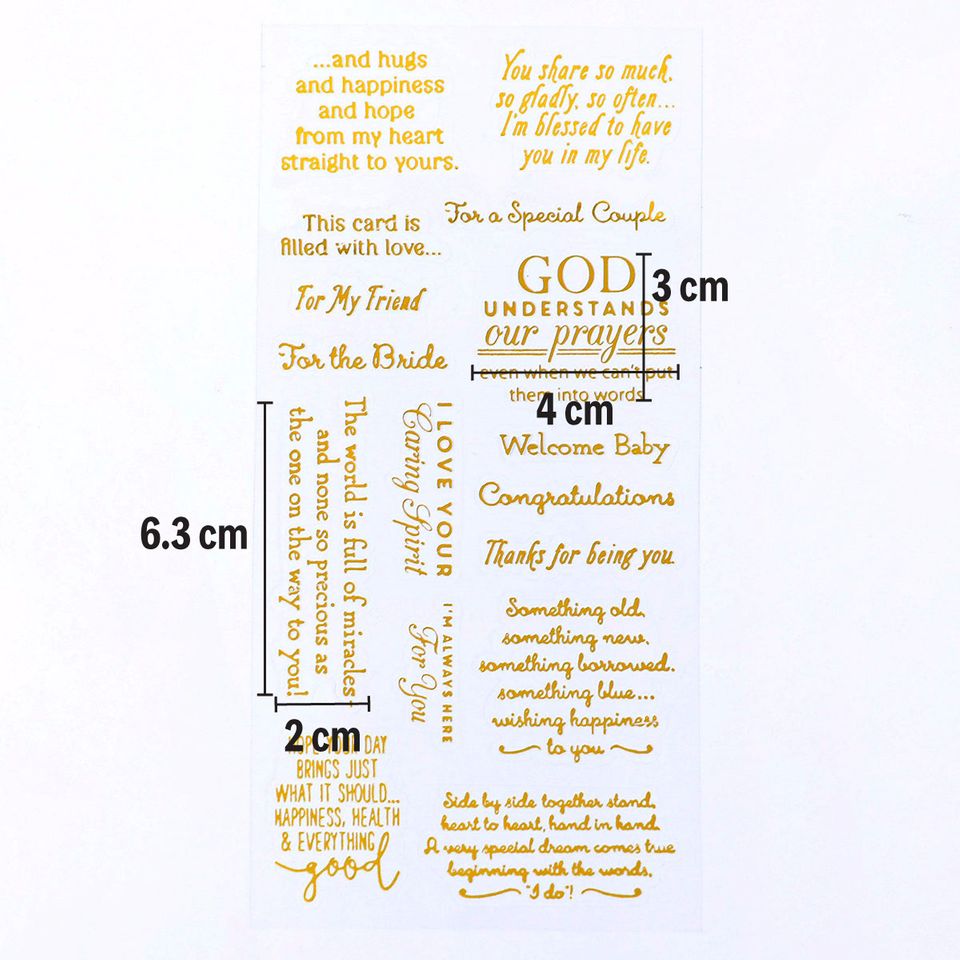 ...and hugs
and happiness
and hope
from my heart
straight to yours.
You share so much,
so gladly, so often...
I'm blessed to have
you in my life.
This card is
filled with love...
For a Special Couple
For My Friend
For the Bride
GOD
UNDERSTANDS
our prayers
even when we can't put
them into words
3 cm
4 cm
The world is full of miracles,
and none so precious as
the one on the way to you!
6.3 cm
2 cm
I LOVE YOUR
Caring Spirit
I'M ALWAYS HERE
For You
Welcome Baby
Congratulations
Thanks for being you.
Something old,
something new,
something borrowed,
something blue...
wishing happiness
to you
HOPE YOUR DAY
BRINGS JUST
WHAT IT SHOULD...
HAPPINESS, HEALTH
& EVERYTHING
good
Side by side together stand,
heart to heart, hand in hand.
A very special dream comes true
beginning with the words,
"I do"!